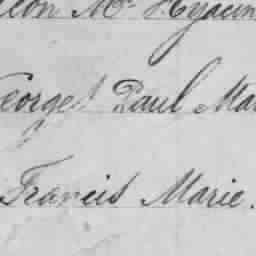 Mr Hyacin
George Paul Ma
Francis Marie.